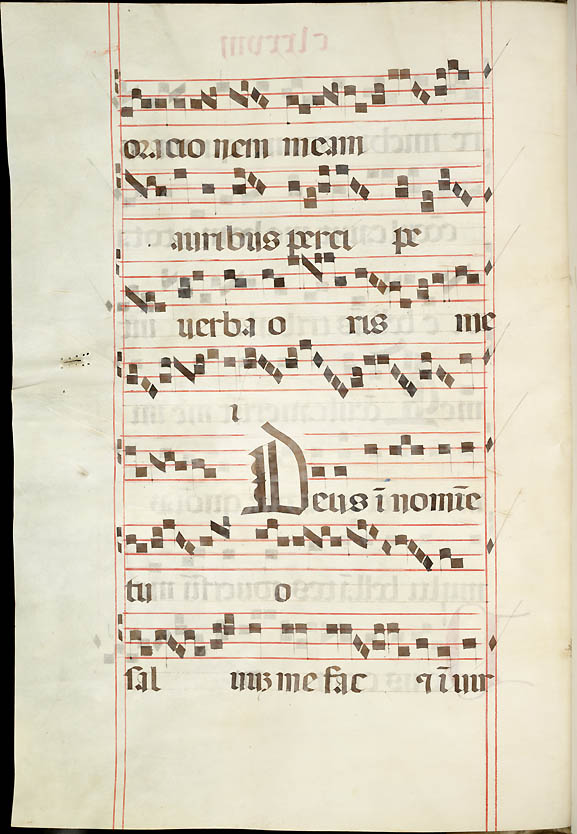 oracionem meam
auribus perci pe
uerba o ris me
i
Deus ī nomīe
tu o
sal uuʒ me fac ⁊ ī uir